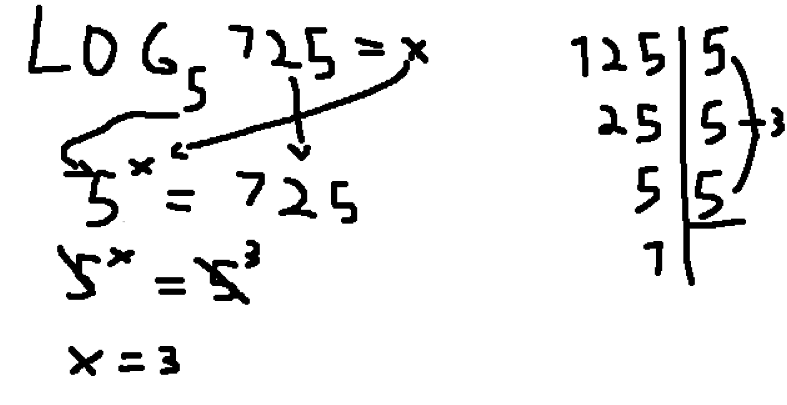 LOG₅ 125 = x
5ˣ = 125
5ˣ = 5³
x = 3
125 | 5
25 | 5 - 3
5 | 5
1 |